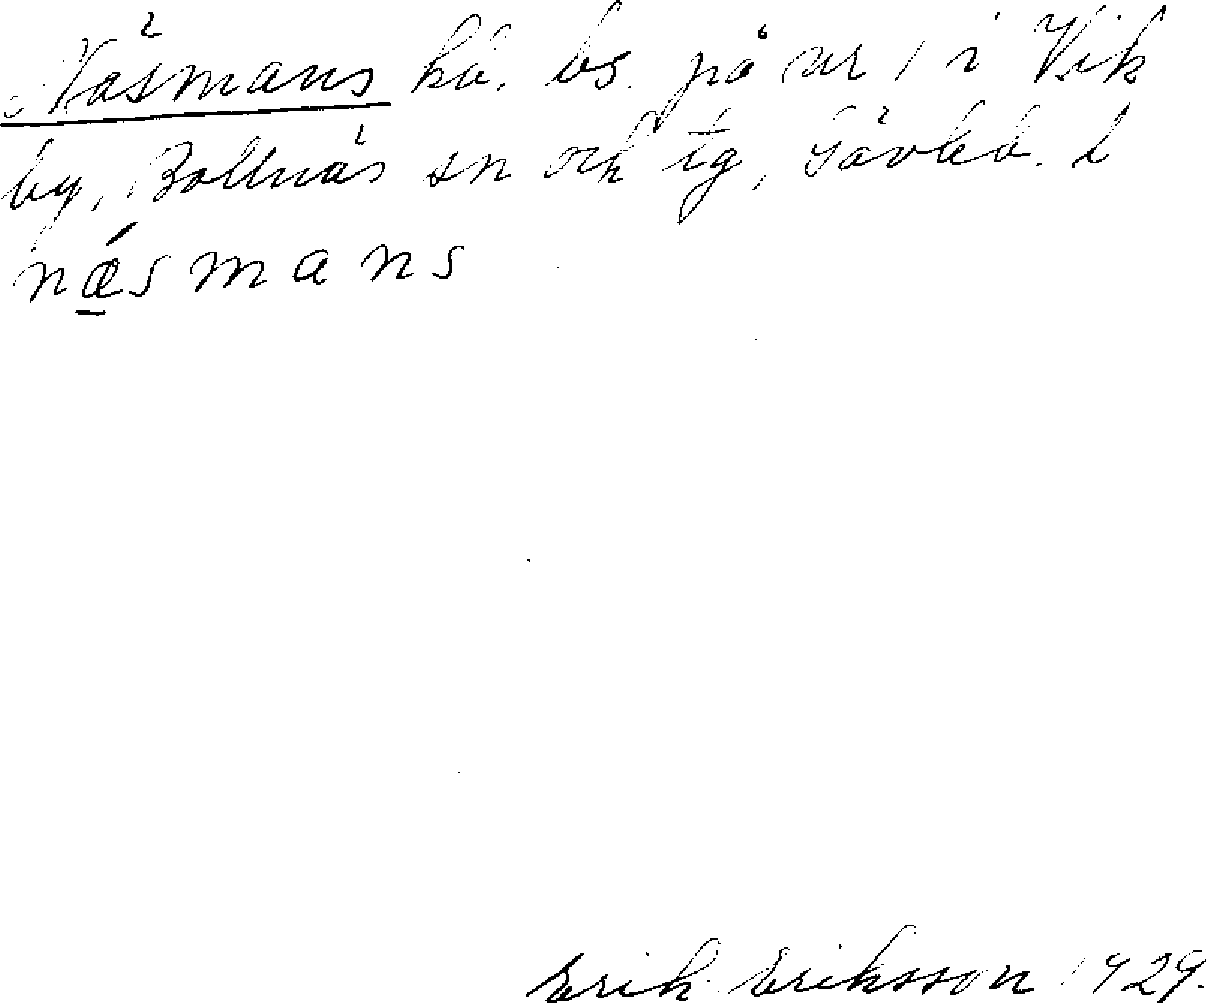 Näsmans hä. bs. på nr 1 i Vik
by, Bollnäs sn och tg, Gävleb. l
nǽ̲smans
Erik Eriksson 1929.